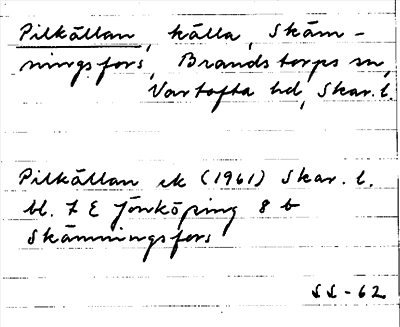 Pilkällan, källa, Skäm-
ningsfors, Brandstorps sn,
Vartofta hd, Skar. l.
Pilkällan ek (1961) Skar. l.
bl. 7 E Jönköping 8 b
Skämningsfors
SS-62